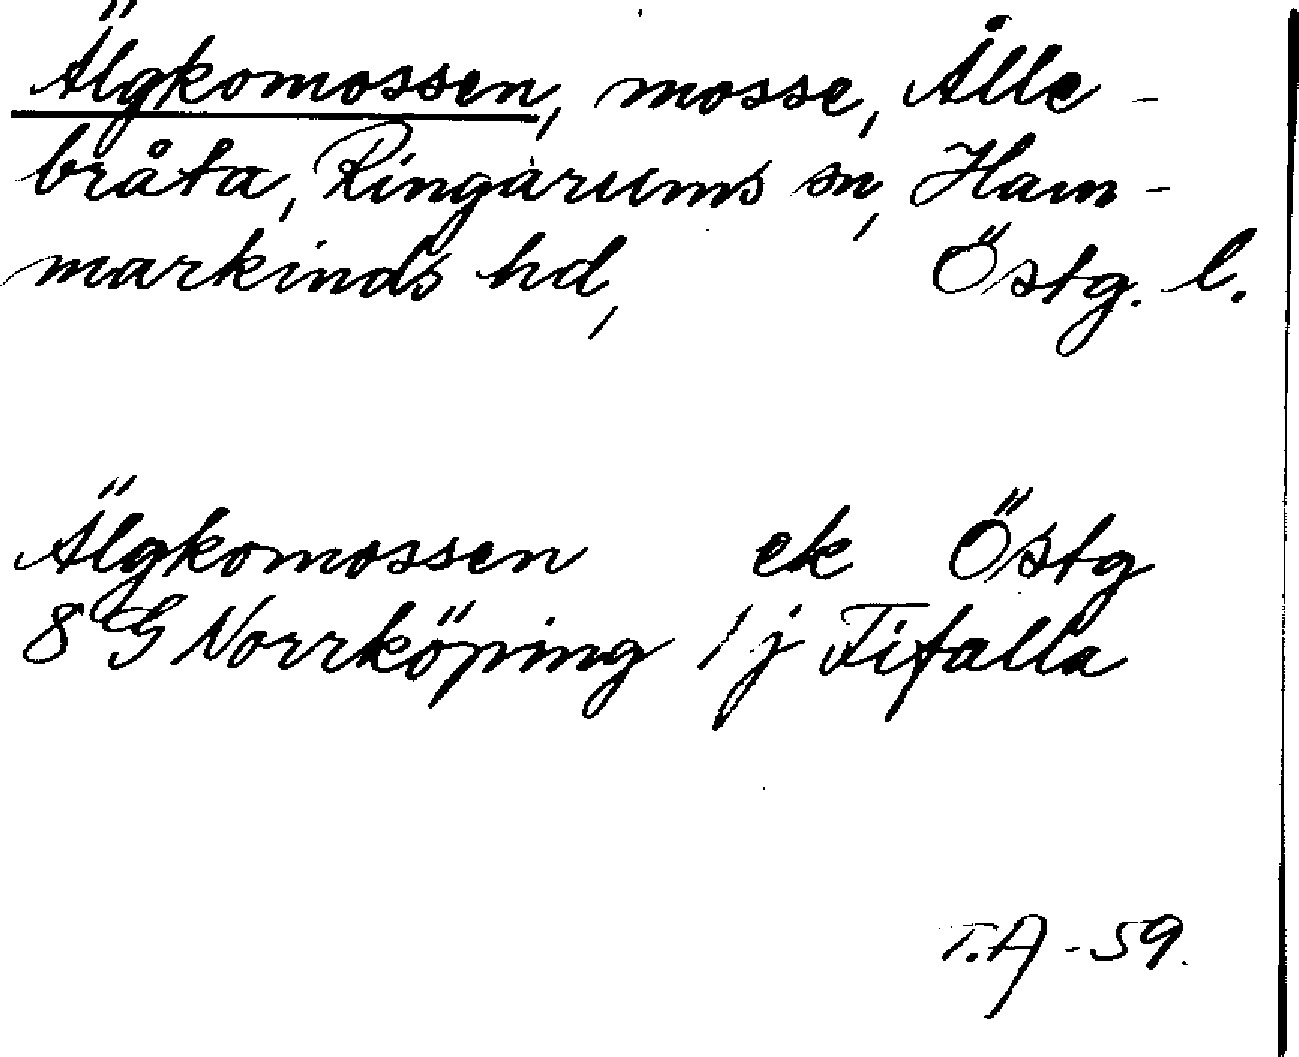 Älgkomossen, mosse, Ålle-
bråta, Ringarums sn, Ham-
markinds hd, Östg. l.
Älgkomossen ek Östg
8 G Norrköping 1 j Fifalla
T.A -59.